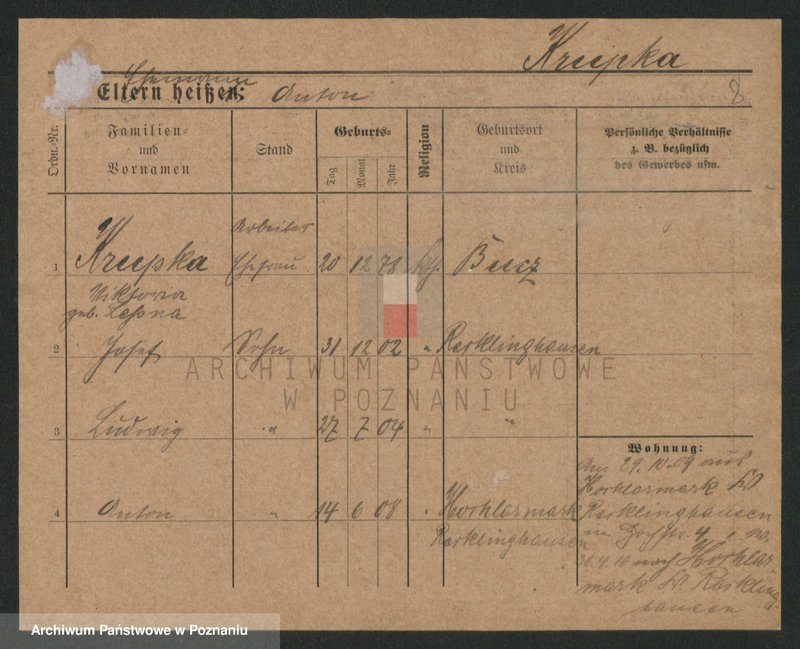 Krupka
8
Ehemann
Eltern heißen: Anton
Ordn.-Nr.
Familien- und Vornamen
Stand
Geburts-
Tag
Monat
Jahr
Religion
Geburtsort und Kreis
Persönliche Verhältnisse
z. B. bezüglich
des Gewerbes usw.
Arbeiter
1 Krupka Ehefrau 20 12 78 kth. Bucz
Viktoria
geb. Lessna
2 Josef Sohn 31 12 02 " Recklinghausen
ARCHIWUM PAŃSTWOWE
W POZNANIU
3 Ludwig " 27 7 04 " "
Wohnung:
Am 29.10.09 aus
Hochlarmark Ld
4 Anton " 14 6 08 " Hochlarmark
Recklinghausen
Recklinghausen
in 4
30.4.10 nach Hochlar
mark Ld. Reckling
hausen
Archiwum Państwowe w Poznaniu